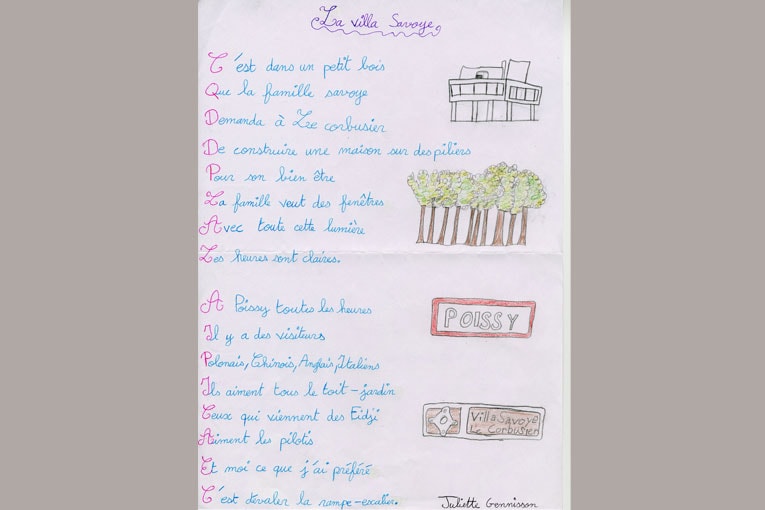 La villa Savoye
C'est dans un petit bois
Que la famille savoye
Demanda à Le corbusier
De construire une maison sur des piliers
Pour son bien être
La famille veut des fenêtres
Avec toute cette lumière
Les heures sont claires.
A Poissy toutes les heures
Il y a des visiteurs
Polonais, Chinois, Anglais, Italiens
Ils aiment tous le toit-jardin
Ceux qui viennent des Fidji
Aiment les pilotis
Et moi ce que j'ai préféré
C'est dévaler la rampe-escalier.
POISSY
Villa Savoye
Le Corbusier
Juliette Gennisson